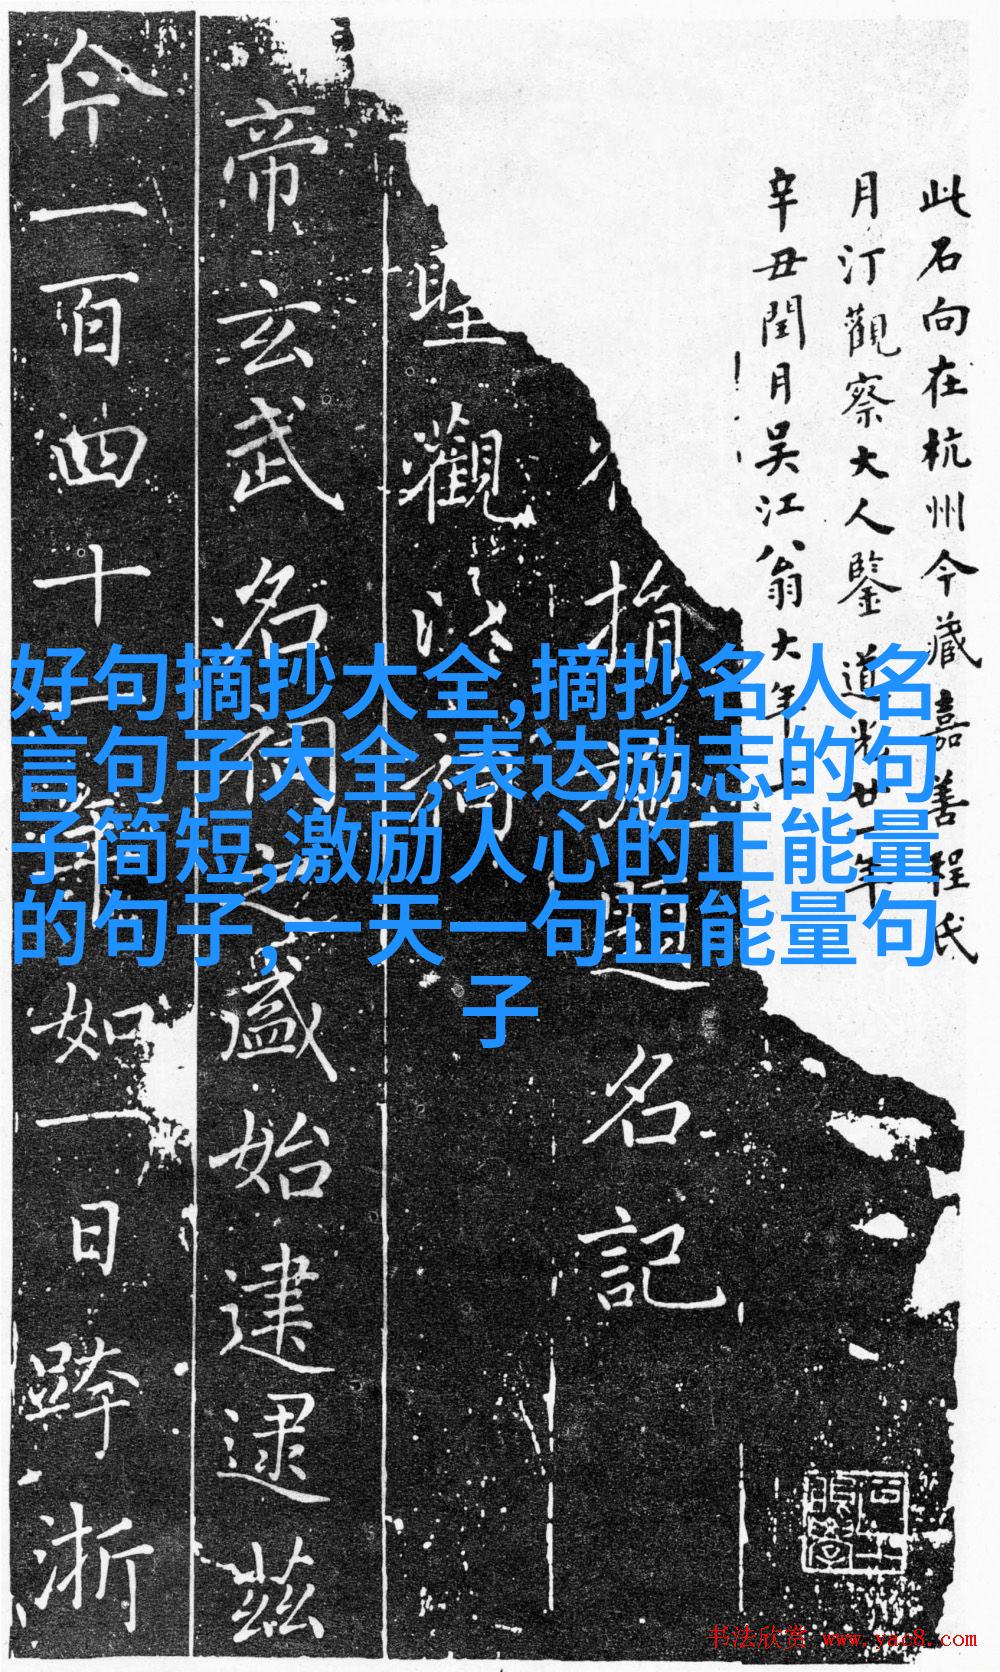 好句摘抄大全,摘抄名人名
言句子大全,表达励志的句
子简短,激励人心的正能量
的句子,一天一句正能量句
子
此石向在杭州今藏嘉善程氏
月汀觀察大人鑒道光廿一年
辛丑閏月吳江翁大年
題名記
聖觀
帝玄武名祠之盛始建逮茲
一百四十一年如一日
浙
书法欣赏 www.yac8.com